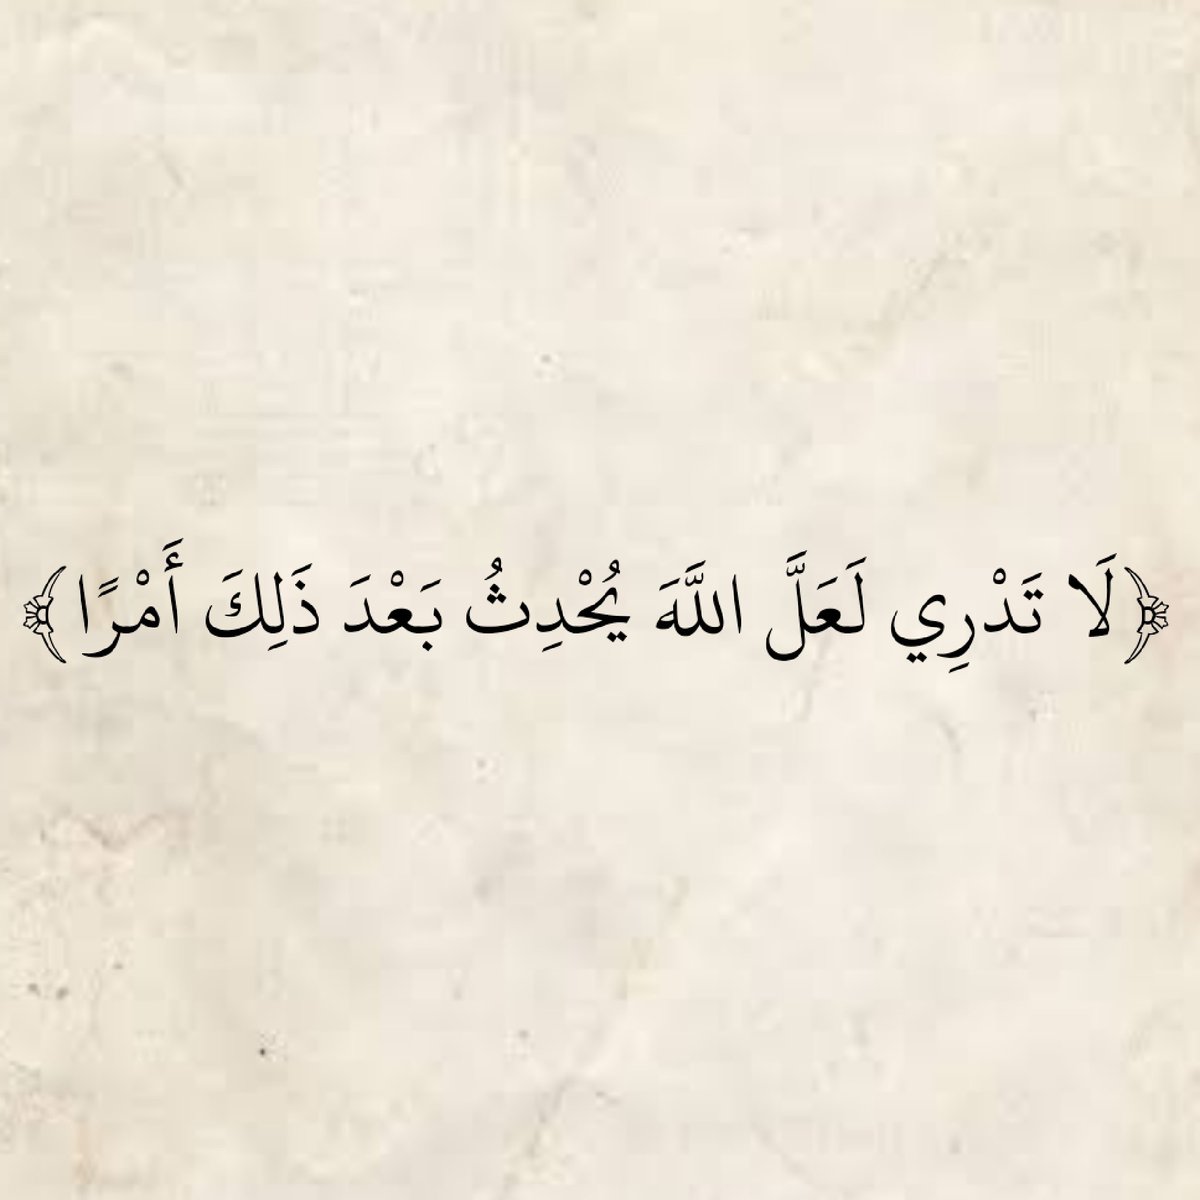 ﴿لَا تَدْرِي لَعَلَّ اللَّهَ يُحْدِثُ بَعْدَ ذَلِكَ أَمْرًا﴾